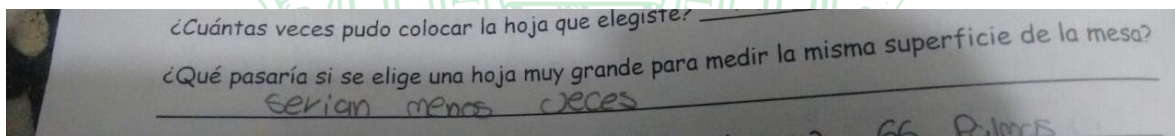 ¿Cuántas veces pudo colocar la hoja que elegiste?
¿Qué pasaría si se elige una hoja muy grande para medir la misma superficie de la mesa?
serian menos veces
66 Palmos